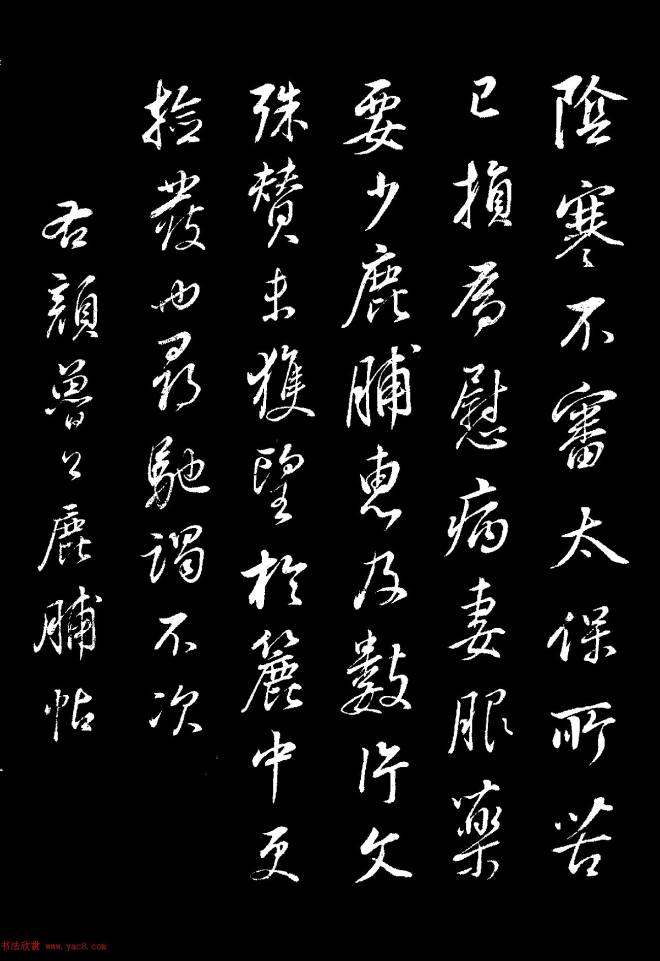 陰寒不審太保所苦
已損焉慰病妻服藥
要少鹿脯惠及數文
殊贊未獲望於簏中更
撿發也尋馳謁不次
右顏魯公鹿脯帖
书法欣赏 www.yac8.com